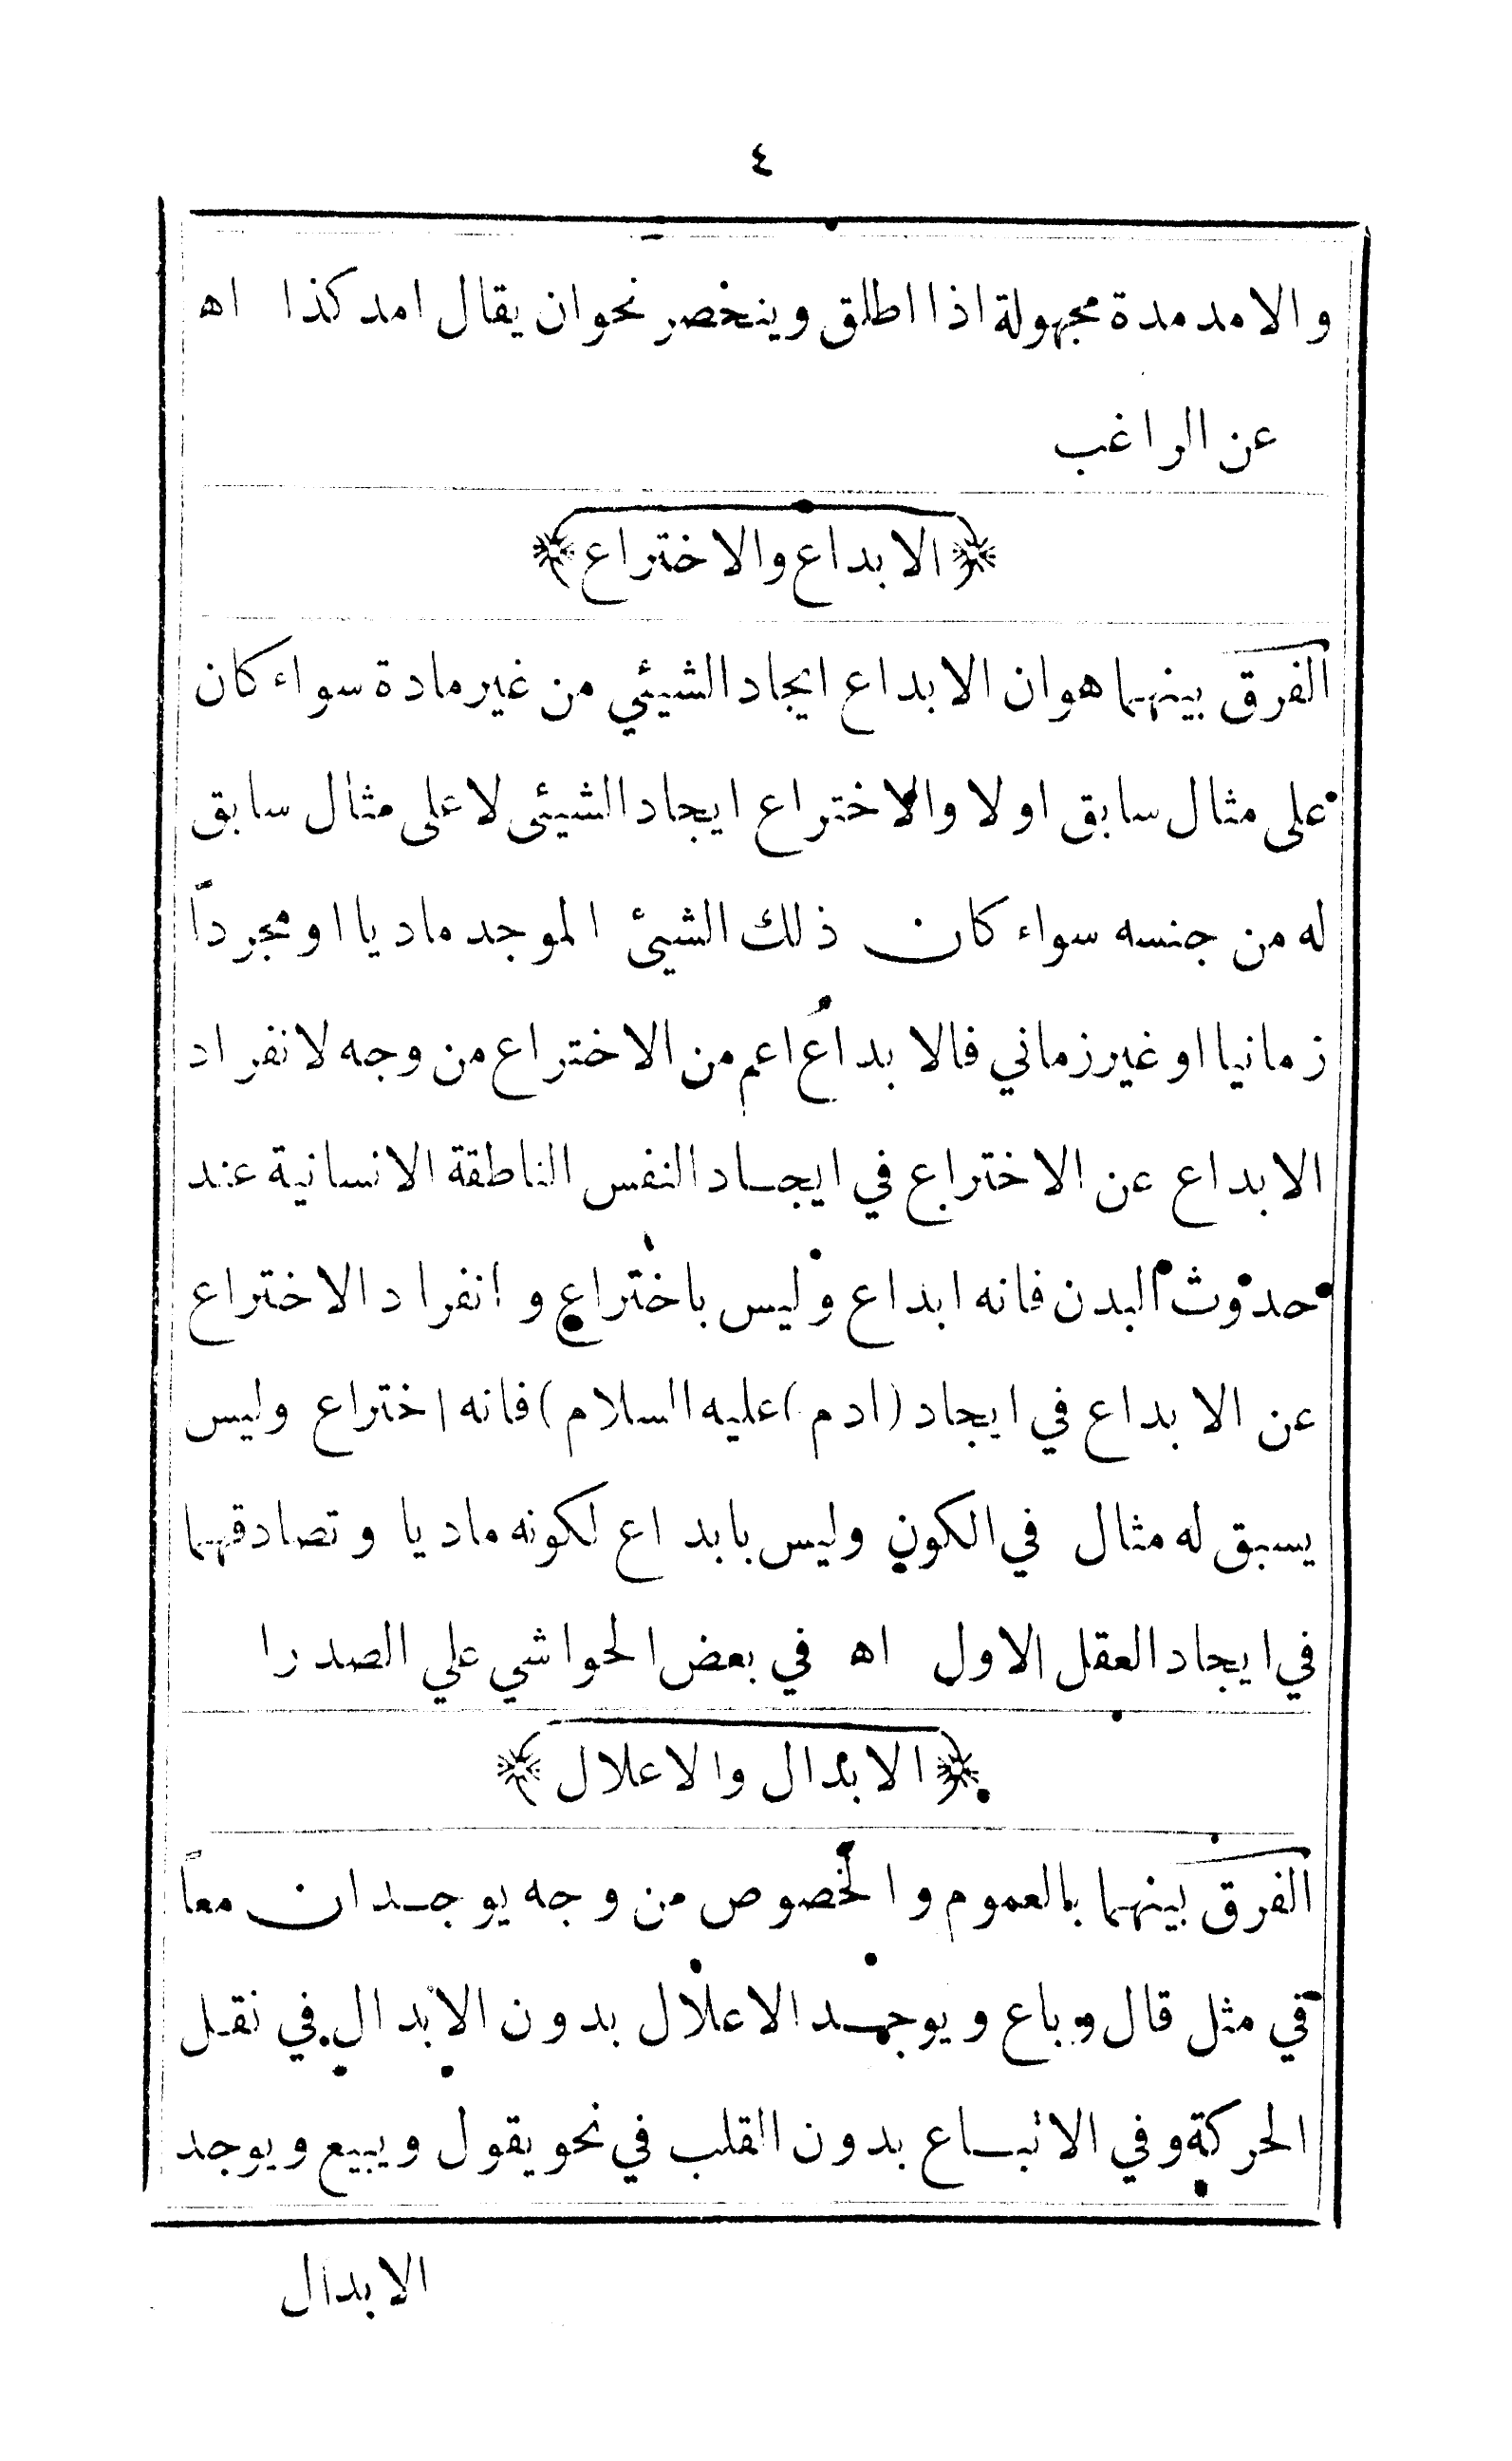 ٤
والامد مدة مجهولة اذا اطلق وينخصر نحوان يقال امد كذا اه
عن الراغب
﴿الابداع والاختراع﴾
الفرق بينهما هوان الابداع ايجاد الشيئي من غير مادة سواء كان
على مثال سابق اولا والاختراع ايجاد الشيئى لا على مثال سابق
له من جنسه سواء كان ذلك الشيئ الموجد ماديا او مجرداً
زمانيا او غير زماني فالابداع اعم من الاختراع من وجه لانفراد
الابداع عن الاختراع في ايجاد النفس الناطقة الانسانية عند
حدوث البدن فانه ابداع وليس باختراع وانفراد الاختراع
عن الابداع في ايجاد (ادم) عليه السلام) فانه اختراع وليس
يسبق له مثال في الكون وليس بابداع لكونه ماديا وتصادقهما
في ايجاد العقل الاول اه في بعض الحواشي علي الصدرا
﴿الابدال والاعلال﴾
الفرق بينهما بالعموم والخصوص من وجه يوجدان معاً
في مثل قال وباع ويوجد الاعلال بدون الابدال في نقل
الحركة وفي الاتباع بدون القلب في نحو يقول ويبيع ويوجد
الابدال